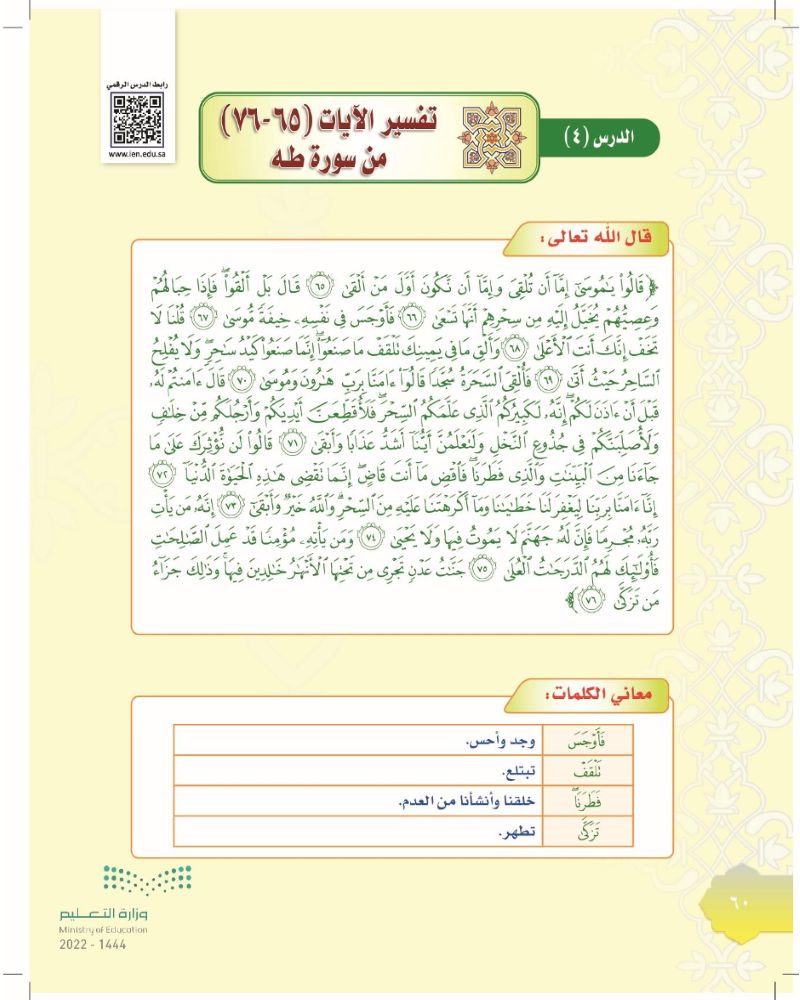 رابط الدرس الرقمي
www.ien.edu.sa
الدرس (٤)
تفسير الآيات (٦٥-٧٦)
من سورة طه
قال الله تعالى:
﴿ قَالُواْ يَٰمُوسَىٰٓ إِمَّآ أَن تُلْقِىَ وَإِمَّآ أَن نَّكُونَ أَوَّلَ مَنْ أَلْقَىٰ ٦٥ قَالَ بَلْ أَلْقُواْۖ فَإِذَا حِبَالُهُمْ
وَعِصِيُّهُمْ يُخَيَّلُ إِلَيْهِ مِن سِحْرِهِمْ أَنَّهَا تَسْعَىٰ ٦٦ فَأَوْجَسَ فِى نَفْسِهِۦ خِيفَةً مُّوسَىٰ ٦٧ قُلْنَا لَا
تَخَفْ إِنَّكَ أَنتَ ٱلْأَعْلَىٰ ٦٨ وَأَلْقِ مَا فِى يَمِينِكَ تَلْقَفْ مَا صَنَعُوٓاْۖ إِنَّمَا صَنَعُواْ كَيْدُ سَٰحِرٍۖ وَلَا يُفْلِحُ
ٱلسَّاحِرُ حَيْثُ أَتَىٰ ٦٩ فَأُلْقِىَ ٱلسَّحَرَةُ سُجَّدًا قَالُوٓاْ ءَامَنَّا بِرَبِّ هَٰرُونَ وَمُوسَىٰ ٧٠ قَالَ ءَامَنتُمْ لَهُۥ
قَبْلَ أَنْ ءَاذَنَ لَكُمْۖ إِنَّهُۥ لَكَبِيرُكُمُ ٱلَّذِى عَلَّمَكُمُ ٱلسِّحْرَۖ فَلَأُقَطِّعَنَّ أَيْدِيَكُمْ وَأَرْجُلَكُم مِّنْ خِلَٰفٍ
وَلَأُصَلِّبَنَّكُمْ فِى جُذُوعِ ٱلنَّخْلِ وَلَتَعْلَمُنَّ أَيُّنَآ أَشَدُّ عَذَابًا وَأَبْقَىٰ ٧١ قَالُواْ لَن نُّؤْثِرَكَ عَلَىٰ مَا
جَآءَنَا مِنَ ٱلْبَيِّنَٰتِ وَٱلَّذِى فَطَرَنَاۖ فَٱقْضِ مَآ أَنتَ قَاضٍۖ إِنَّمَا تَقْضِى هَٰذِهِ ٱلْحَيَوٰةَ ٱلدُّنْيَآ ٧٢
إِنَّآ ءَامَنَّا بِرَبِّنَا لِيَغْفِرَ لَنَا خَطَٰيَٰنَا وَمَآ أَكْرَهْتَنَا عَلَيْهِ مِنَ ٱلسِّحْرِۗ وَٱللَّهُ خَيْرٌ وَأَبْقَىٰٓ ٧٣ إِنَّهُۥ مَن يَأْتِ
رَبَّهُۥ مُجْرِمًا فَإِنَّ لَهُۥ جَهَنَّمَ لَا يَمُوتُ فِيهَا وَلَا يَحْيَىٰ ٧٤ وَمَن يَأْتِهِۦ مُؤْمِنًا قَدْ عَمِلَ ٱلصَّٰلِحَٰتِ
فَأُوْلَٰٓئِكَ لَهُمُ ٱلدَّرَجَٰتُ ٱلْعُلَىٰ ٧٥ جَنَّٰتُ عَدْنٍ تَجْرِى مِن تَحْتِهَا ٱلْأَنْهَٰرُ خَٰلِدِينَ فِيهَاۚ وَذَٰلِكَ جَزَآءُ
مَن تَزَكَّىٰ ٧٦ ﴾
معاني الكلمات:
فَأَوْجَسَ وجد وأحس.
تَلْقَفْ تبتلع.
فَطَرَنَاۖ خلقنا وأنشأنا من العدم.
تَزَكَّىٰ تطهر.
وزارة التعليم
Ministry of Education
2022 - 1444
٦٠